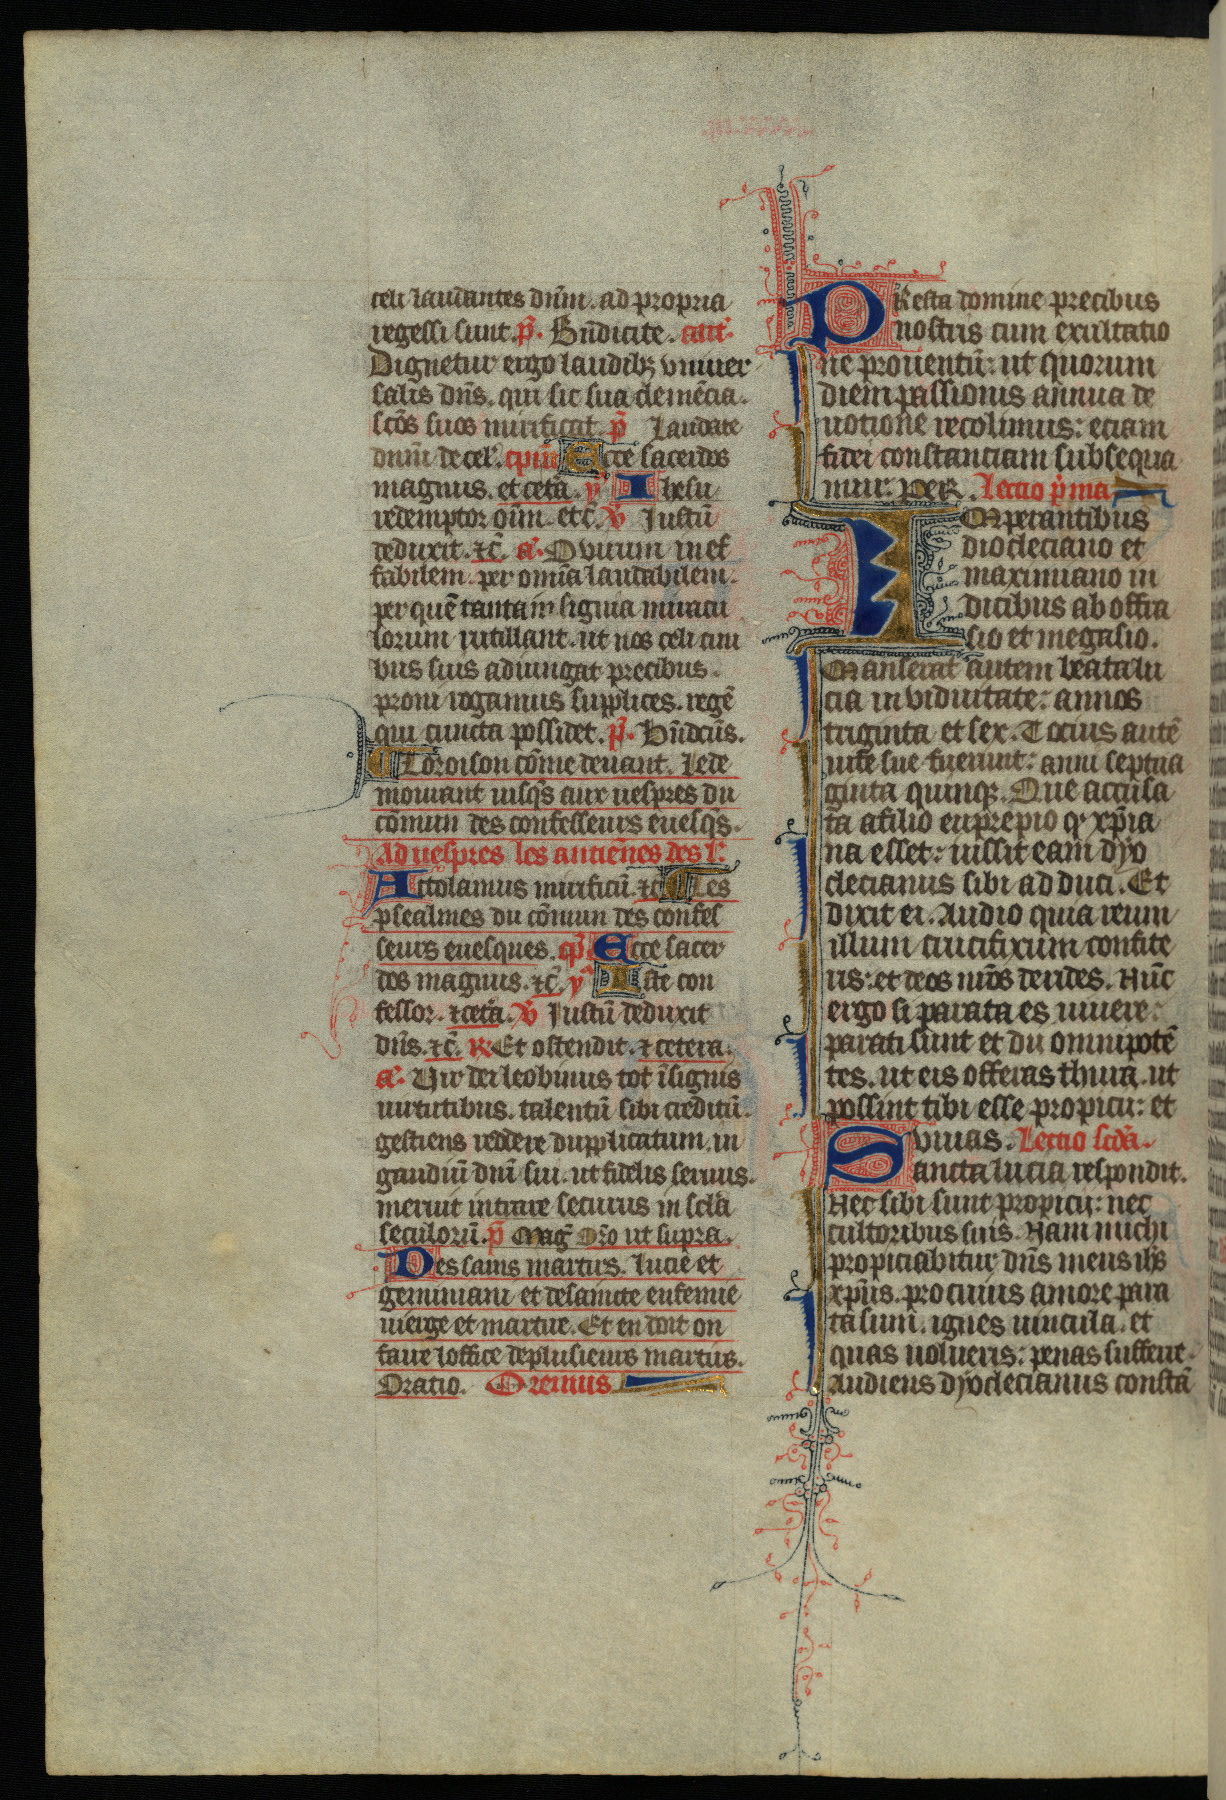 celi laudantes dnm̄. ad propria
regessi sunt. p̄. Bn̄dicite. ant̄.
Dignetur ergo laudibꝫ vniuer
salis dn̄s. qui sic sua clemēcia.
scōs suos mirificat. p̄ Laudate
dnm̄ de cel̄. cpitl̄m Ecce sacerdos
magnus. et cetā. ẏ Ihesu
redemptor oīm. etc̄. v̄ Iustū
deduxit. ⁊c̄. a. O virum inef
fabilem. per omīa laudabilem.
per quē tanta insignia miracu
lorum rutillant. ut nos celi ciui
bus suis adiungat precibus.
proni rogamus supplices. regē
qui cuncta possidet. p̄. Bn̄dcūs.
Loroison cōme deuant. Lede
mouiant iusqs̄ aux uespres du
cōmun des confesseurs euesqs̄.
Ad uespres les antiēnes des l.
Attolamus mirificū. ⁊c̄ Les
psealmes du cōmun des confes
seurs euesques. cp̄ Ecce sacer
dos magnus. ⁊c̄. ẏ Iste con
fessor. ⁊cetā. v̄ Iustū deduxit
dn̄s. ⁊c̄. R Et ostendit. ⁊cetera.
a. Vir dei leobinus tot īsignis
uirtutibus. talentū sibi creditū.
gestiens reddere dupplicatum. in
gaudiū dnī sui. ut fidelis seruus.
meruit intrare securus in sclā
seculorū. p̄ Maḡ Or̄o ut supra.
Des sains martirs. lucie et
geminiani et de saincte eufemie
uierge et martire. Et en doit on
faire loffice de plusieurs martirs.
Oratio. Oremus
PResta domine precibus
nostris cum exultatio
ne prouentū: ut quorum
diem passionis annua de
uotione recolimus: eciam
fidei constanciam subsequa
mur. PeR. Lectio p̄ma
IMperantibus
diocleciano et
maximiano iu
dicibus ab offra
sio et megasio.
Manserat autem beata lu
cia in viduitate: annos
triginta et sex. Tocius autē
uite sue fuerunt: anni septua
ginta quinqꝫ. Que accusa
ta a filio euprepio qꝫ xp̄ia
na esset: iussit eam dyo
clecianus sibi ad duci. Et
dixit ei. Audio quia reum
illum crucifixum confite
ris: et deos nr̄os derides. Nūc
ergo si parata es uiuere:
parati sunt et dii omnipotē
tes. ut eis offeras thura. ut
possint tibi esse propicii: et
viuas. Lectio scdā.
Sancta lucia respondit.
Nec sibi sunt propicii: nec
cultoribus suis. Nam michi
propiciabitur dn̄s meus ihs̄
xp̄us. pro cuius amore para
ta sum. ignes uincula. et
quas uolueris: penas sufferre.
Audiens dyoclecianus constā